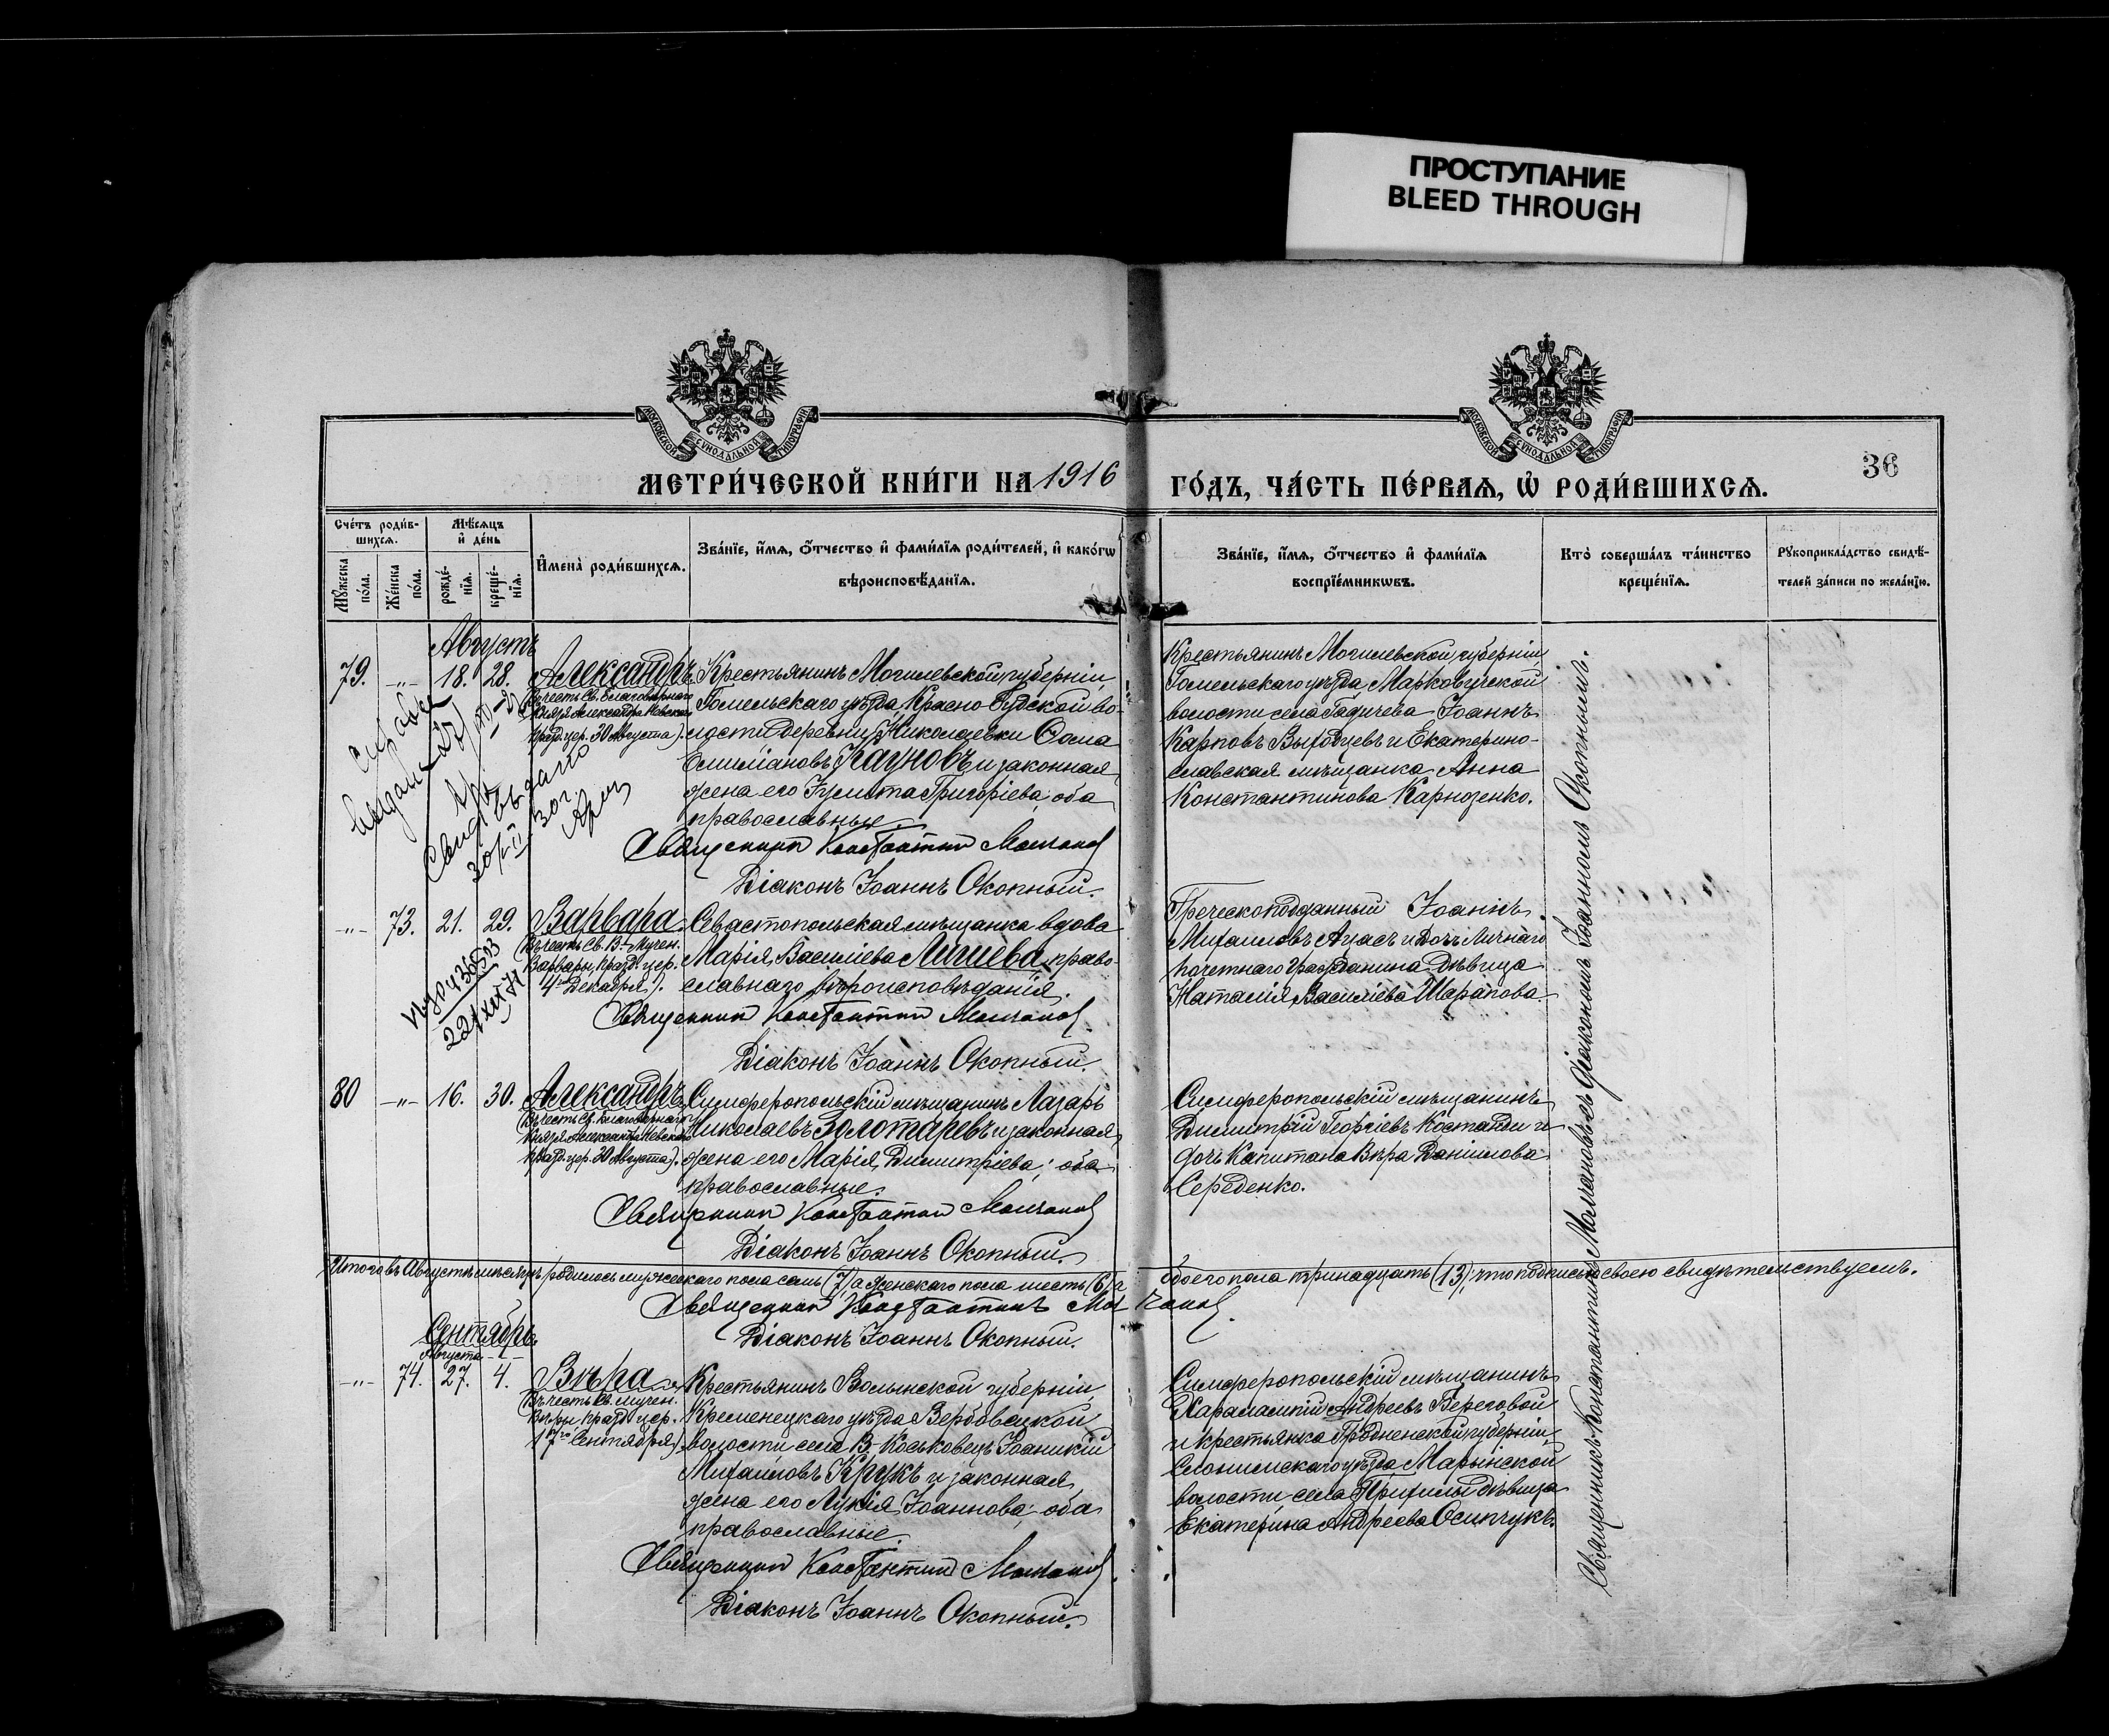 ПРОСТУПАНИЕ
BLEED THROUGH
МОСКОВСКОЙ СУНОДАЛЬНОЙ ТИПОГРАФІИ
МОСКОВСКОЙ СУНОДАЛЬНОЙ ТИПОГРАФІИ
МЕТРИ́ЧЕСКОЙ КНИ́ГИ НА 1916 ГО́ДЪ, ЧА́СТЬ ПЕ́РВАЯ, Ѡ РОДИ́ВШИХСЯ.
36
Сче́тъ роди́в-
шихся.
Мѣ́сяцъ
и де́нь
Мꙋ́жеска по́ла.
Же́нска по́ла.
рожде́-
нїя.
креще́-
нїя.
И҆мена̀ роди́вшихся.
Зва́нїе, и҆́мя, ѻ҆́тчество и҆ фами́лїя роди́телей, и҆ како́гѡ
вѣроисповѣ́данїя.
Зва́нїе, и҆́мя, ѻ҆́тчество и҆ фами́лїя
воспрїе́мникѡвъ.
Кто̀ соверша́лъ та́инство
креще́нїя.
Рꙋкоприкла́дство свидѣ́-
телей за́писи по жела́нїю.
Августъ
79. -"- 18. 28. Александръ
(Въ честь Св. Благовѣрнаго
Князя Александра Невскаго
празд. цер. 30 Августа).
Крестьянинъ Могилевской губерніи,
Гомельскаго уѣзда, Красно-Будской во-
лости деревни Николаевки Ѳома
Емиліановъ Кауновъ и законная
жена его Іулитта Григоріева; оба
православные.
Священникъ Константинъ Молчановъ
Діаконъ Іоаннъ Окопный.
Крестьянинъ Могилевской губерніи,
Гомельскаго уѣзда, Марковичской
волости, села Гадичева Іоаннъ
Карповъ Выходцевъ и Екатерино-
славская мѣщанка Анна
Константинова Карнозенко.
-"- 73. 21. 29. Варвара
(Въ честь Св. В-Мучен.
Варвары, празд. цер.
4го Декабря).
Севастопольская мѣщанка вдова
Марія Василіева Лишева, право-
славнаго вѣроисповѣданія.
Священникъ Константинъ Молчановъ
Діаконъ Іоаннъ Окопный.
Греческоподданный Іоаннъ
Михаиловъ Ацасъ и дочь Личнаго
почетнаго Гражданина дѣвица
Наталія Василіева Шарапова
80 -"- 16. 30. Александръ
(Въ честь Св. Благовѣрнаго
Князя Александра Невскаго
празд. цер. 30 Августа).
Симферопольскій мѣщанинъ Лазарь
Николаевъ Золотаревъ и законная
жена его Марія Димитріева; оба
православные.
Священникъ Константинъ Молчановъ
Діаконъ Іоаннъ Окопный.
Симферопольскій мѣщанинъ
Димитрій Георгіевъ Костанди и
дочь Капитана Вѣра Даніилова
Середенко.
Итого въ Августѣ мѣсяцѣ родилось мужескаго пола семь (7), а женскаго пола шесть (6), а обоего пола тринадцать (13), что подписью своею свидѣтельствуемъ.
Священникъ Константинъ Молчановъ
Діаконъ Іоаннъ Окопный.
Сентябрь
Августа
-"- 74. 27. 4. Вѣра
(Въ честь Св. мучен.
Вѣры празд. цер.
17го Сентября).
Крестьянинъ Волынской губерніи
Кременецкаго уѣзда Вербовецкой
волости села В-Коськовецъ Іоанникій
Михаиловъ Крукъ и законная
жена его Лукія Іоаннова; оба
православные.
Священникъ Константинъ Молчановъ
Діаконъ Іоаннъ Окопный.
Симферопольскій мѣщанинъ
Харалампій Андреевъ Береговой
и крестьянка Гродненской губерніи,
Слонимскаго уѣзда Марьинской
волости села дѣвица
Екатерина Андреева Осипчукъ.
Священникъ Константинъ Молчановъ съ діакономъ Іоанномъ Окопнымъ.